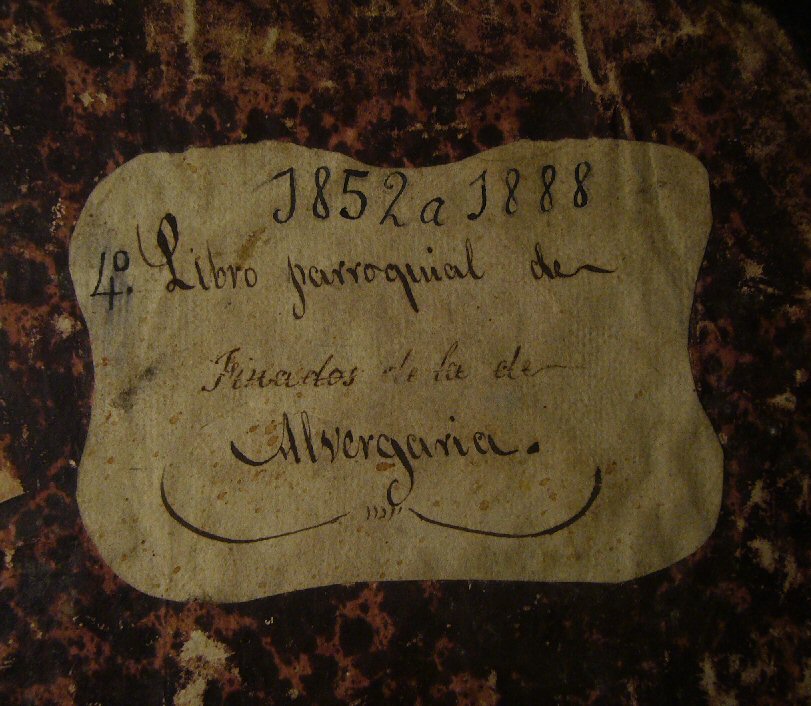 1852 a 1888
4º. Libro parroquial de
Finados de la de
Alvergaria.